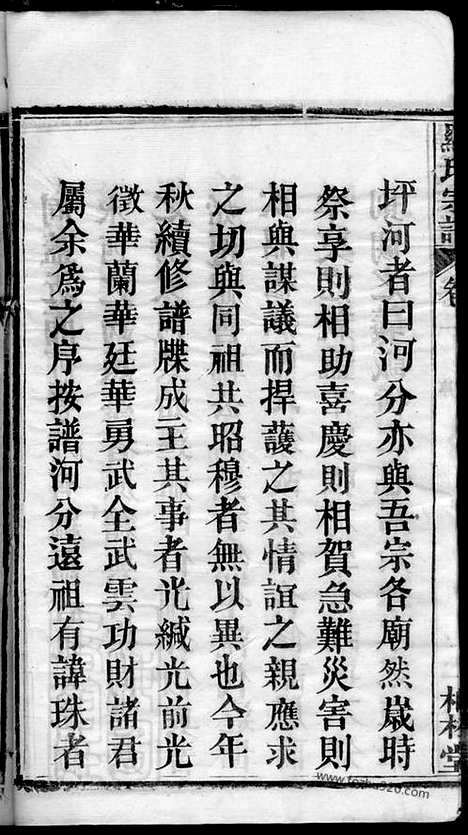 坪河者曰河分亦與吾宗各廟然歲時
祭享則相助喜慶則相賀急難災害則
相與謀議而捍䕶之其情誼之親應求
之切與同祖共昭穆者無以異也今年
秋續修譜牒成主其事者光緘光前光
徵華蘭華廷華勇武全武雲功財諸君
屬余爲之序按譜河分遠祖有諱珠者